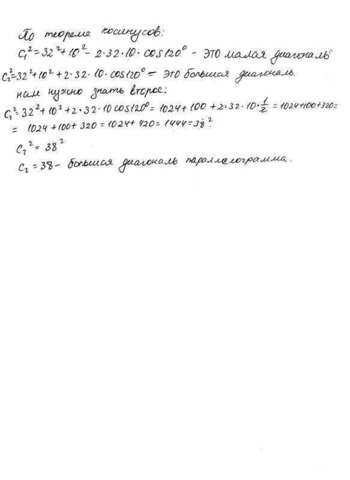 По теореме косинусов:
c₁²=32²+10² - 2·32·10·cos120° - это малая диагональ
c₂²=32²+10²+2·32·10·cos120° - это большая диагональ.
нам нужно знать второе:
c₁²=32²+10²+2·32·10cos120°=1024+100+2·32·10·1/2=1024+100+320=
= 1024+100+320=1024+420=1444=38².
c₂²=38²
c₂=38- большая диагональ параллелограмма.